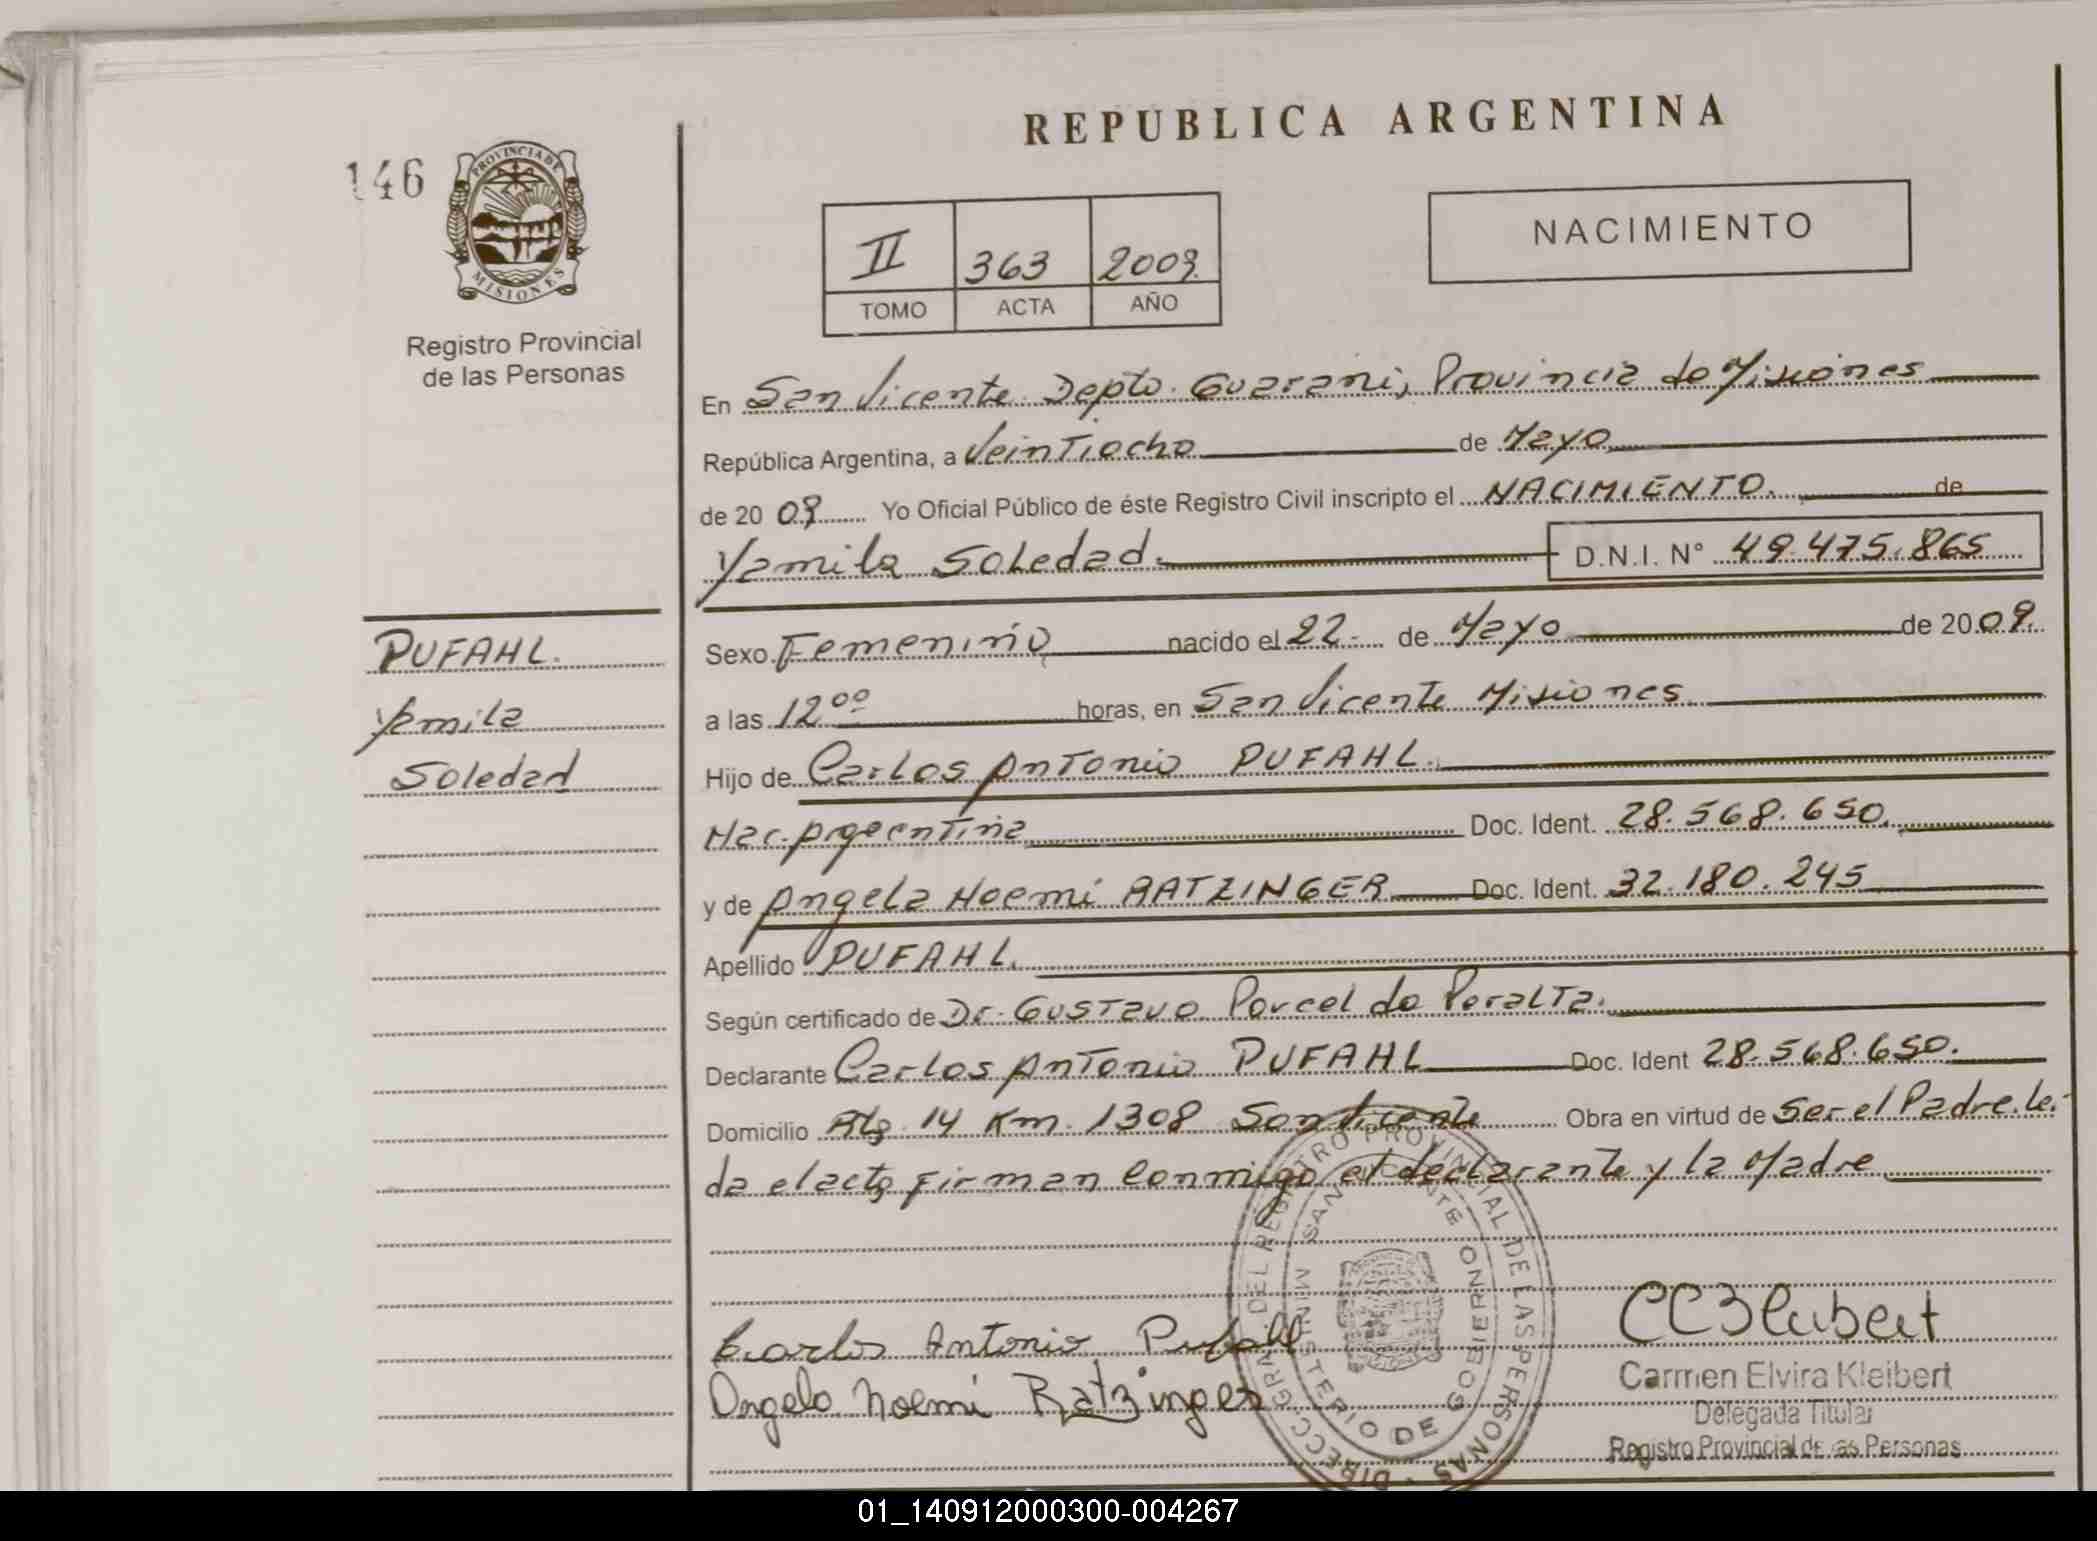 REPUBLICA ARGENTINA
146
PROVINCIA DE
MISIONES
Registro Provincial
de las Personas
II 363 2009.
TOMO ACTA AÑO
NACIMIENTO
En San Vicente Depto. Guarani, Provincia de Misiones
República Argentina, a Veintiocho de Mayo
de 20 09 Yo Oficial Público de éste Registro Civil inscripto el NACIMIENTO. de
Yamila Soledad. D.N.I. N° 49.475.865
PUFAHL.
Yamila
Soledad
Sexo Femenino nacido el 22- de Mayo de 2009.
a las 12⁰⁰ horas, en San Vicente Misiones
Hijo de Carlos Antonio PUFAHL.
Nac. Argentina Doc. Ident. 28.568.650.
y de Angela Noemi RATZINGER Doc. Ident. 32.180.245
Apellido PUFAHL.
Según certificado de Dr. Gustavo Porcel de Peralta.
Declarante Carlos Antonio PUFAHL Doc. Ident 28.568.650.
Domicilio Rta 14 Km. 1308 San Vicente Obra en virtud de Ser el Padre. le-
da el acta firman conmigo el declarante y la Madre
Carlos Antonio Pufahl
Angela Noemi Ratzinger
DIRECC. GRAL. DEL REGISTRO PROVINCIAL DE LAS PERSONAS
SAN VICENTE
MINISTERIO DE GOBIERNO
Carmen Elvira Kleibert
Delegada Titular
Registro Provincial de las Personas
01_140912000300-004267